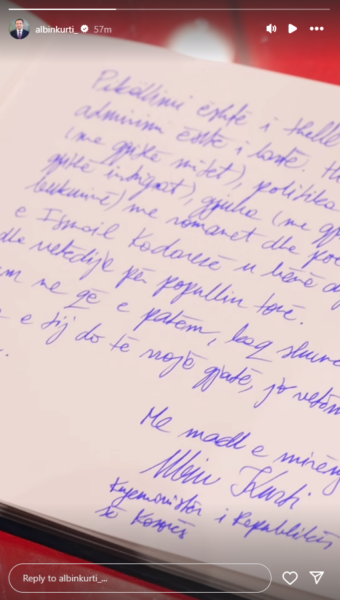 albinkurti_ 57m
Pikëllimi është i thellë
admirimi është i lartë.
(me gjithë mitet), politika
gjithë intrigat), gjuha (me
bukurinë) me romanet dhe
e Ismail Kadaresë u bënë
dhe vetëdija për popullin tonë.
ne që e patëm, kaq shumë
e tij do të vuajë gjatë, jo vetëm
Me mall e mirënj
Albin Kurti
Kryeministër i Republikës
së Kosovës
Reply to albinkurti_...